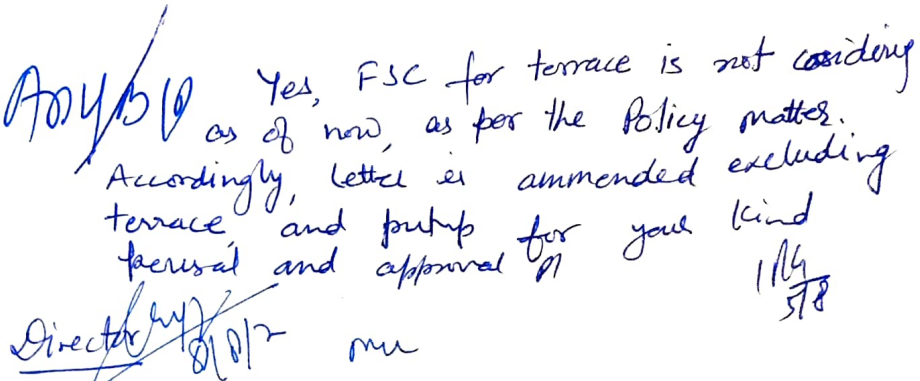 Yes, FSC for terrace is not cosidering
as of now, as per the Policy matter.
Accordingly, letter is ammended excluding
terrace, and putup for your kind
perusal and approval
5/8
Director